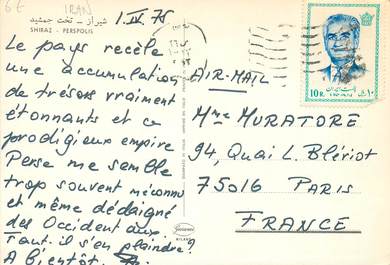 6 € IRAN
شیراز - تخت جمشید
SHIRAZ - PERSPOLIS
1.IV.75
Le pays recèle
une accumulation
de trésors vraiment
étonnants et ce
prodigieux empire
Perse me semble
trop souvent méconnu
et même dédaigné
des Occidentaux.
Faut-il s'en plaindre?
A bientôt.
AIR-MAIL
Mme MURATORE
94, Quai L. Blériot
75016 PARIS
FRANCE
10R.
۱۰ ریال
MILAN